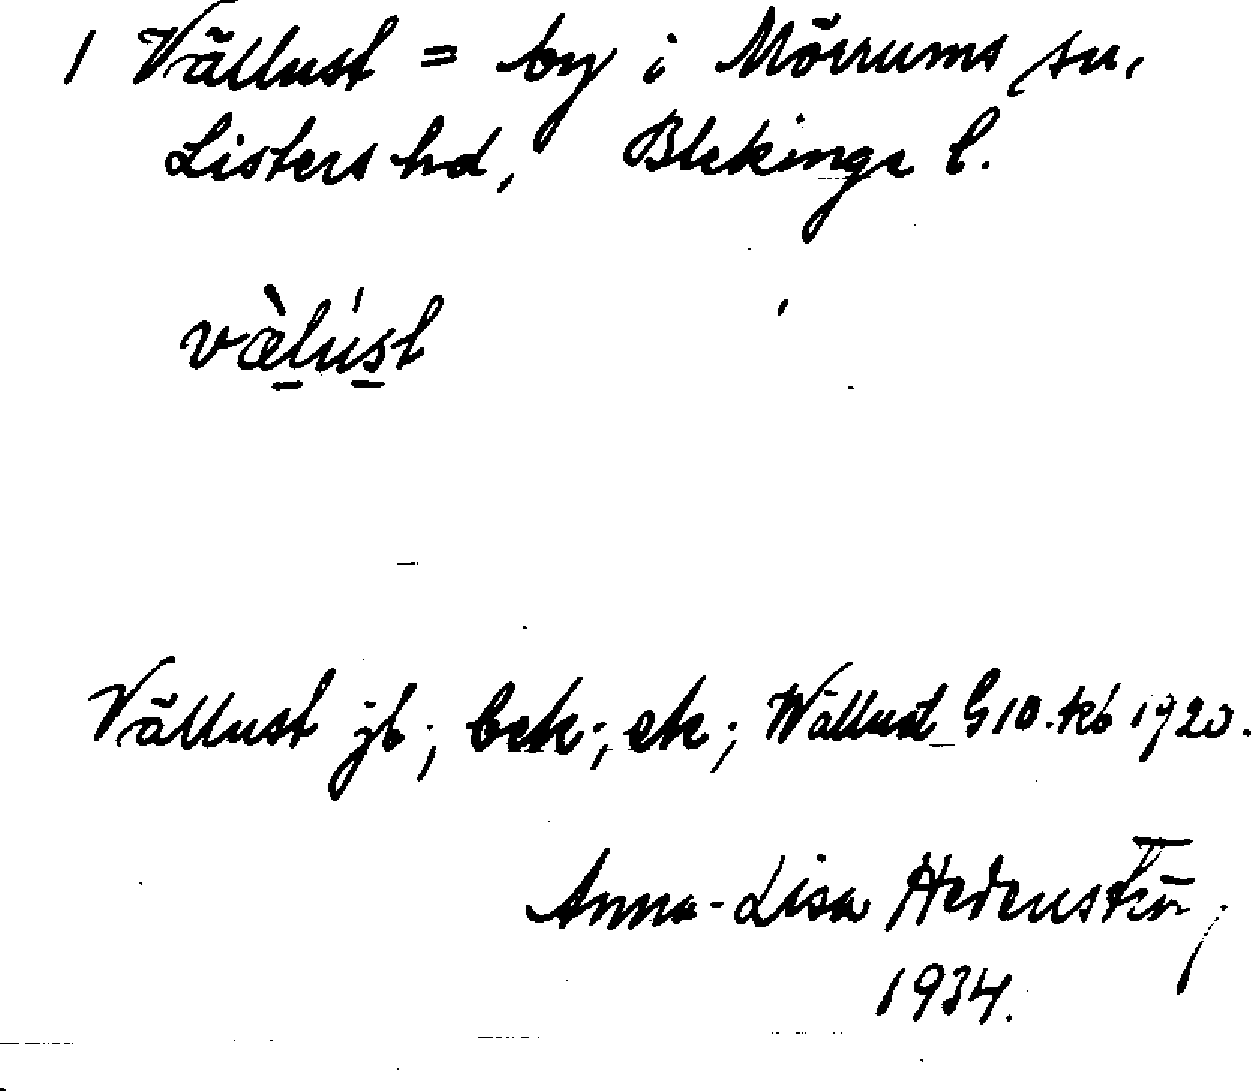 1 Vällust = by i Mörrums sn,
Listers hd, Blekinge l.
væ̀lúst
Vällust jb; bek; ek; Wällust G10. tkb 1920.
Anna-Lisa
1934.